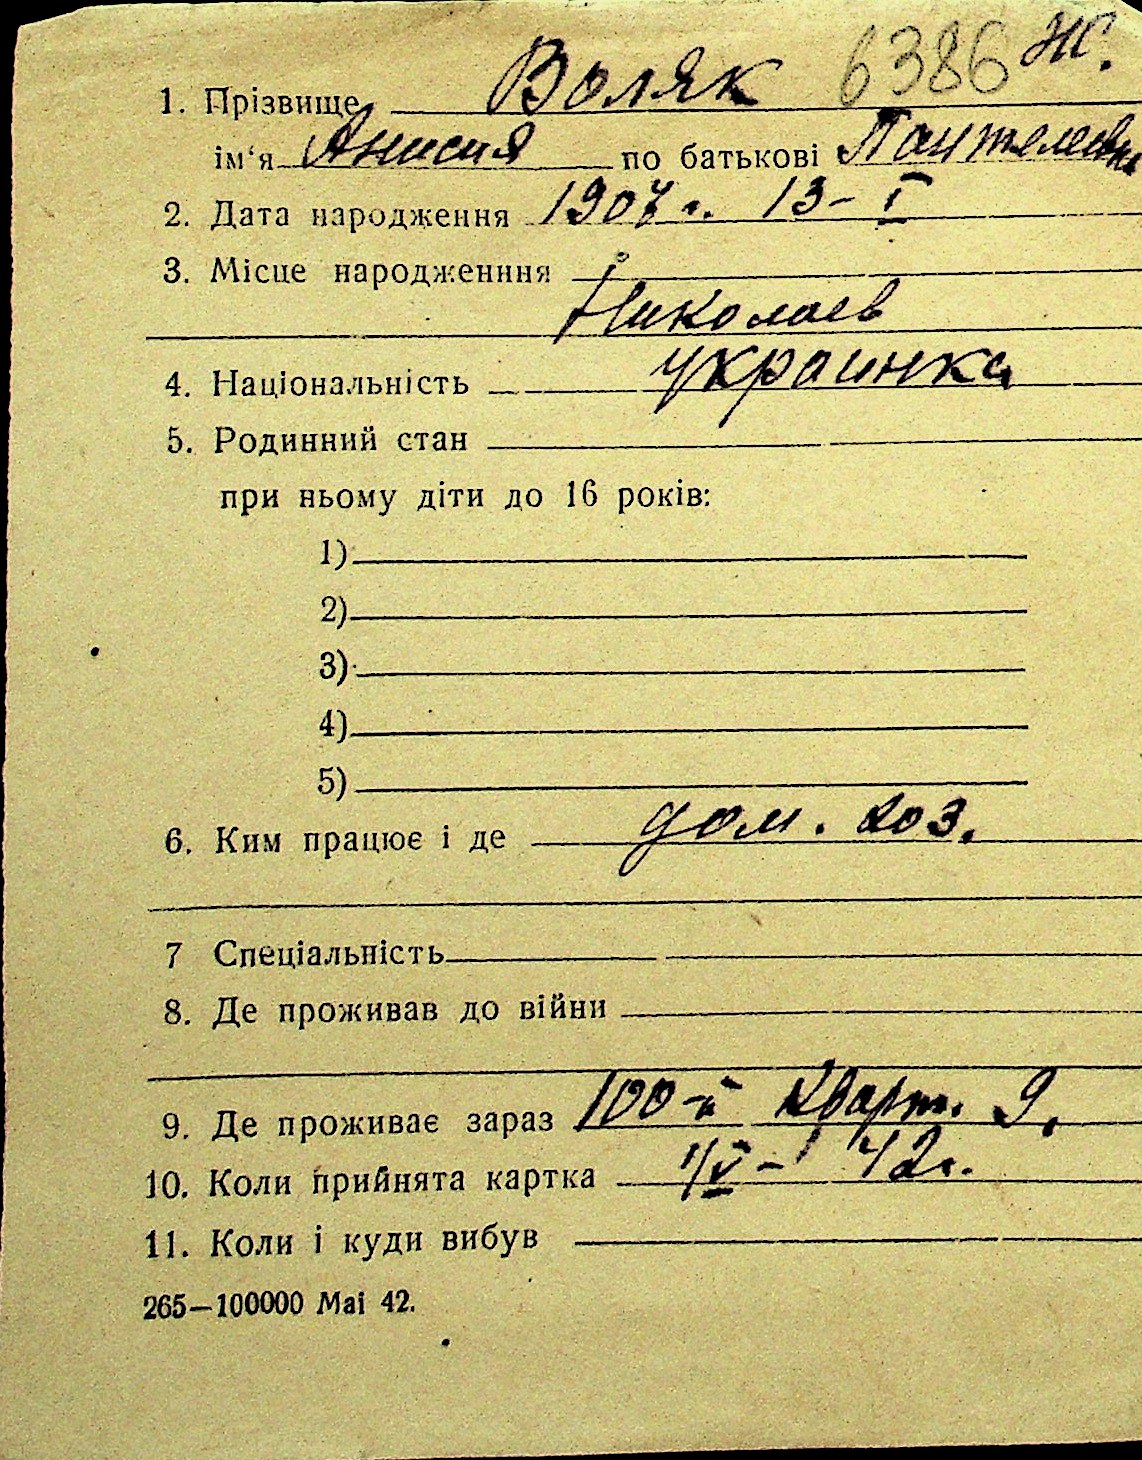 1. Прізвище Воляк 6386 Ж.
ім‘я Анисия по батькові Пантелеевна
2. Дата народження г. 13-I
3. Місце народженння
г. Николаев
4. Національність украинка
5. Родинний стан
при ньому діти до 16 років:
1)
2)
3)
4)
5)
6. Ким працює і де дом. хоз.
7 Спеціальність
8. Де проживав до війни
9. Де проживає зараз 100-й кварт. 9.
10. Коли прийнята картка 42г.
11. Коли і куди вибув
265—100000 Маі 42.